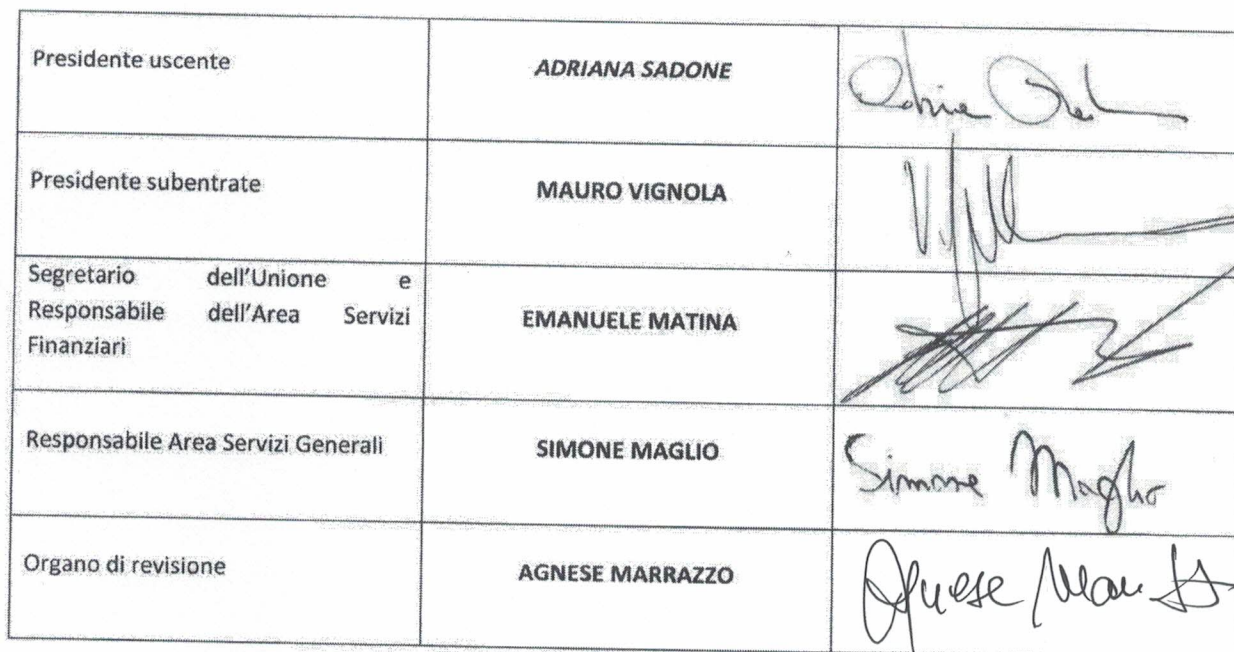 Presidente uscente
ADRIANA SADONE
Presidente subentrate
MAURO VIGNOLA
Segretario dell'Unione e
Responsabile dell'Area Servizi
Finanziari
EMANUELE MATINA
Responsabile Area Servizi Generali
SIMONE MAGLIO
Simone Maglio
Organo di revisione
AGNESE MARRAZZO
Agnese